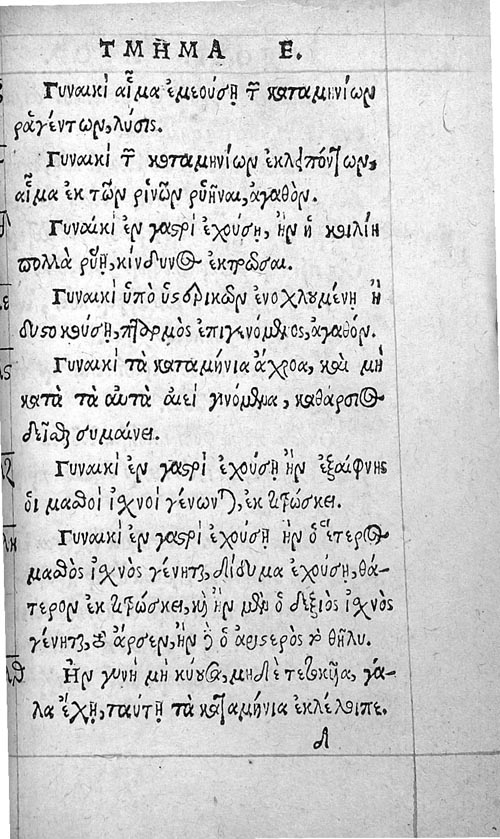 ΤΜΗΜΑ Ε.
Γυναικὶ αἷμα ἐμεούσῃ τῶν καταμηνίων
ῥαγέντων, λύσις.
Γυναικὶ τῶν καταμηνίων ἐκλειπόντων,
αἷμα ἐκ τῶν ῥινῶν ῥυῆναι, ἀγαθόν.
Γυναικὶ ἐν γαστρὶ ἐχούσῃ, ἢν ἡ κοιλίη
πολλὰ ῥυῇ, κίνδυνος ἐκτρῶσαι.
Γυναικὶ ὑπὸ ὑστερικῶν ἐνοχλουμένῃ ἢ
δυστοκούσῃ, πταρμὸς ἐπιγενόμενος, ἀγαθόν.
Γυναικὶ τὰ καταμήνια ἄχροα, καὶ μὴ
κατὰ τὰ αὐτὰ αἰεὶ γινόμενα, καθάρσιος
δεῖσθαι σημαίνει.
Γυναικὶ ἐν γαστρὶ ἐχούσῃ ἢν ἐξαίφνης
οἱ μασθοὶ ἰσχνοὶ γένωνται, ἐκτιτρώσκει.
Γυναικὶ ἐν γαστρὶ ἐχούσῃ ἢν ὁ ἕτερος
μασθὸς ἰσχνὸς γένηται, δίδυμα ἐχούσῃ, θά-
τερον ἐκτιτρώσκει, καὶ ἢν μὲν ὁ δεξιὸς ἰσχνὸς
γένηται, τὸ ἄρσεν, ἢν δὲ ὁ ἀριστερὸς τὸ θῆλυ.
Ἢν γυνὴ μὴ κύουσα, μηδὲ τετοκυῖα, γά-
λα ἔχῃ, ταύτῃ τὰ καταμήνια ἐκλέλοιπε.
δ